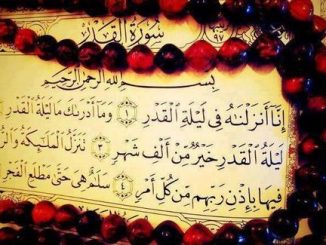 سُورَةُ الْقَدْرِ
بِسْمِ اللَّهِ الرَّحْمَٰنِ الرَّحِيمِ
إِنَّا أَنزَلْنَاهُ فِي لَيْلَةِ الْقَدْرِ ١ وَمَا أَدْرَاكَ مَا لَيْلَةُ الْقَدْرِ
لَيْلَةُ الْقَدْرِ خَيْرٌ مِّنْ أَلْفِ شَهْرٍ ٣ تَنَزَّلُ الْمَلَائِكَةُ
فِيهَا بِإِذْنِ رَبِّهِم مِّن كُلِّ أَمْرٍ ٤ سَلَامٌ هِيَ حَتَّىٰ مَطْلَعِ الْفَجْرِ